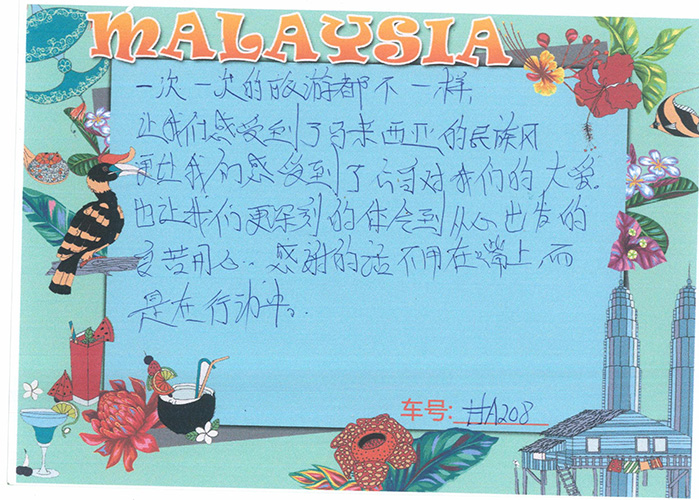 MALAYSIA
一次一次的旅游都不一样,
让我们感受到了马来西亚的民族风
更让我们感受到了公司对我们的大爱
也让我们更深刻的体会到从心出发的
良苦用心. 感谢的话不用在嘴上,而
是在行动中。
车号: #A208